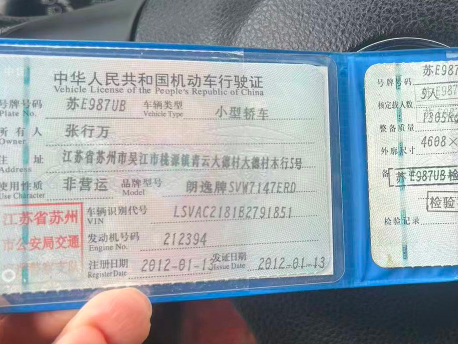 中华人民共和国机动车行驶证
Vehicle License of the People's Republic of China
号牌号码 苏E987UB 车辆类型 小型轿车
Plate No. Vehicle Type
所有人 张行万
Owner
江苏省苏州市吴江市桃源镇青云大德村大德村木行5号
使用性质 非营运 品牌型号 朗逸牌SVW7147ERD
Use Character Model
车辆识别代号 LSVAC2181B2791851
VIN
发动机号码 212394
Engine No.
注册日期 2012-01-13 发证日期 2012-01-13
Register Date Issue Date
江苏省苏州
市公安局交通
号牌号码 苏E987
核定载人数
整备质量
外廓尺寸 4608×
苏E987UB检
检验
检验记录